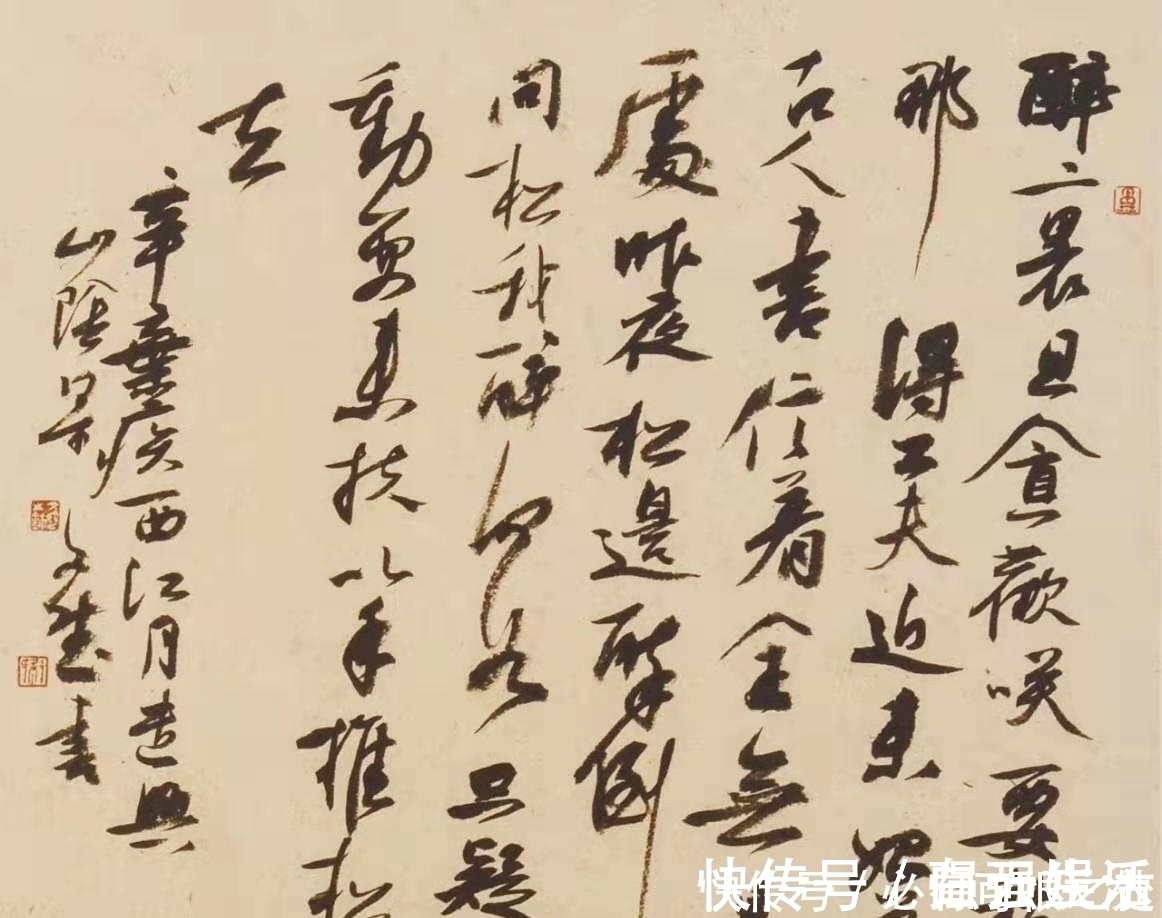 醉裏且貪歡咲要
那得工夫近来始
古人書信着全無
處昨夜松邊醉倒
問松我醉何如只疑
動要来扶以手推松
去
辛棄疾西江月遣興
山陰 書
快传号/